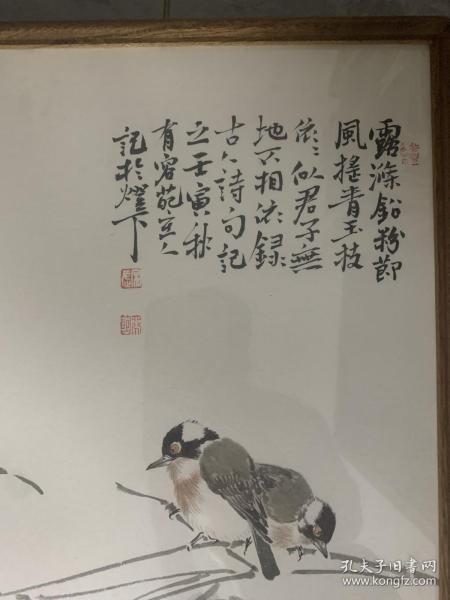 露滌鉛粉節
風搖青玉枝
依依似君子無
地不相依録
古人詩句記
之壬寅秋
有容苑主人
記於燈下
孔夫子旧书网
www.kongfz.com